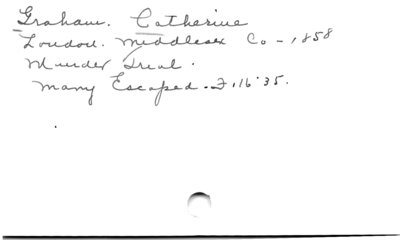 Graham. Catherine
London. Middlesex Co - 1858
Murder Trial.
Many Escaped - F, 16·35.